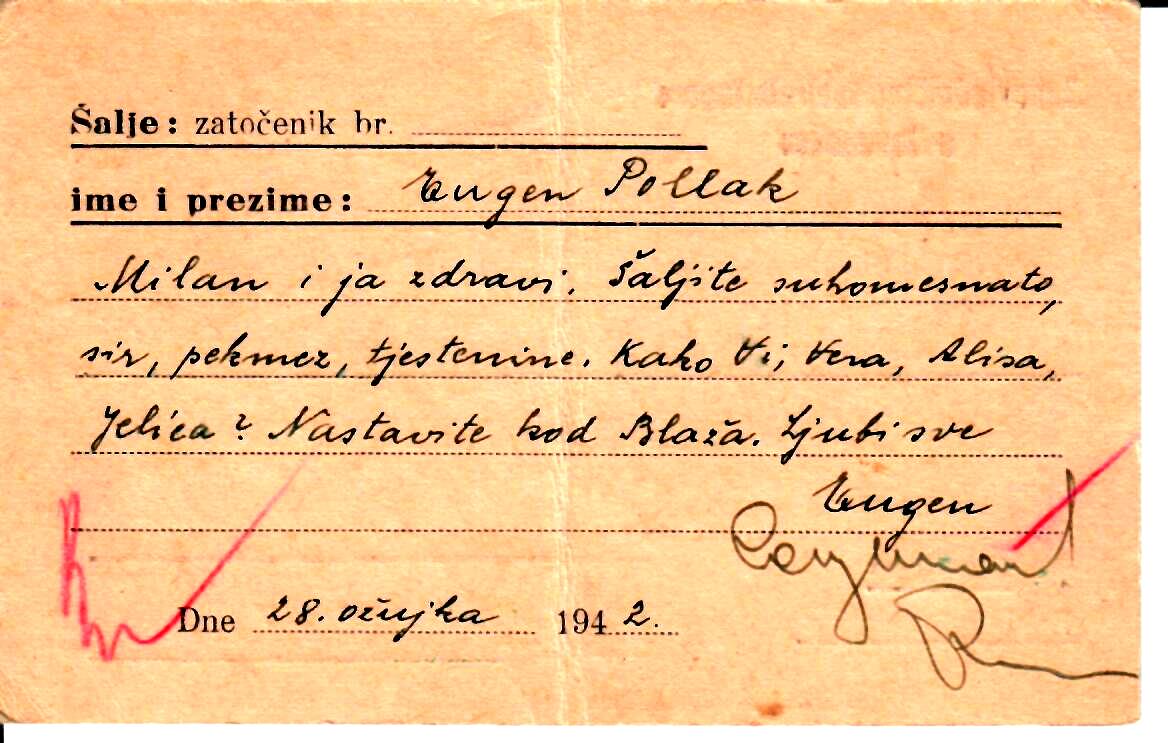 Šalje: zatočenik br.
ime i prezime: Eugen Pollak
Milan i ja zdravi. Šaljite suhomesnato,
sir, pekmez, tjestenine. Kako Vi, Vera, Alisa,
Jelica? Nastavite kod Blaža. Ljubi sve
Eugen
Dne 28. ožujka 1942.